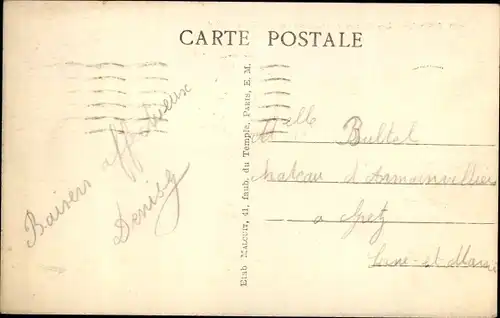 CARTE POSTALE
Baisers affectueux
Denise
Etab MALCUIT, 41, faub. du Temple, PARIS, E. M.
Melle Bultel
Chateau d'Armainvilliers
a Gretz
Seine-et-Marne